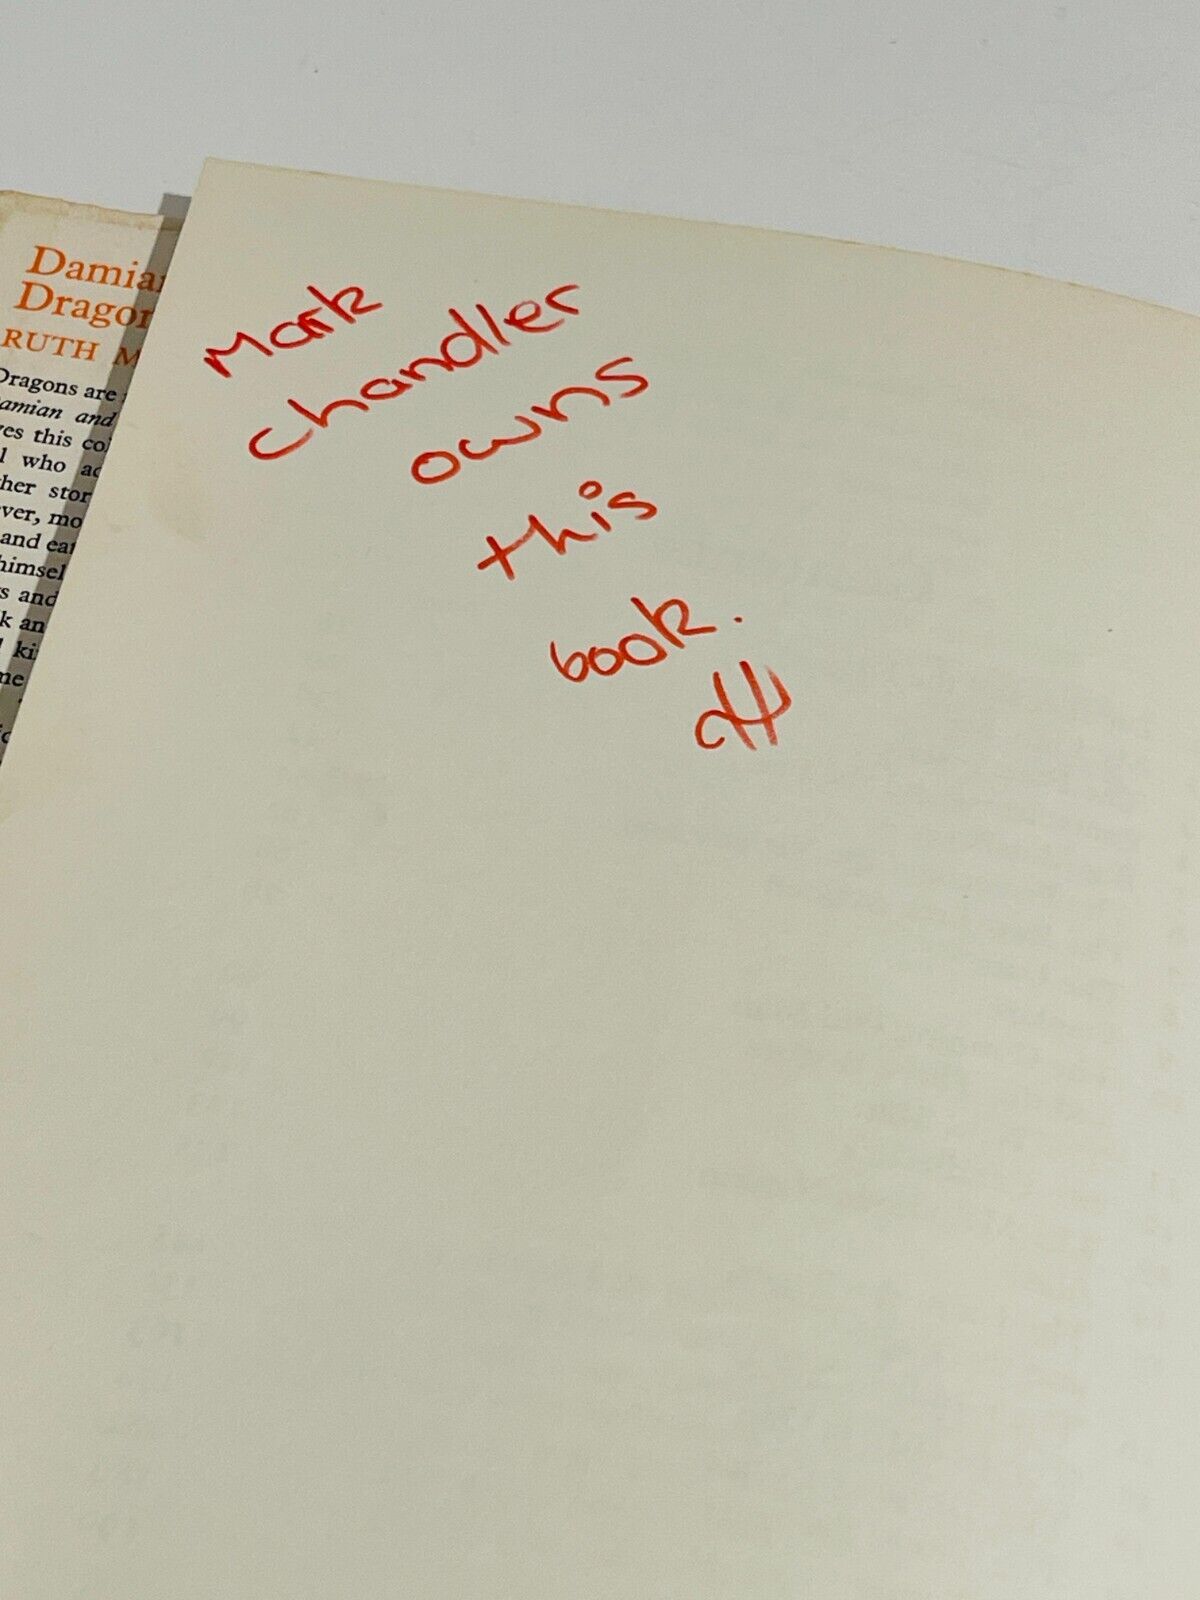 Damia
Dragon
RUTH M
Dragons are
amian and
es this col
l who ac
her stor
ver, mo
and eat
himsel
s and
k an
l ki
me
Mark
chandler
owns
this
book.